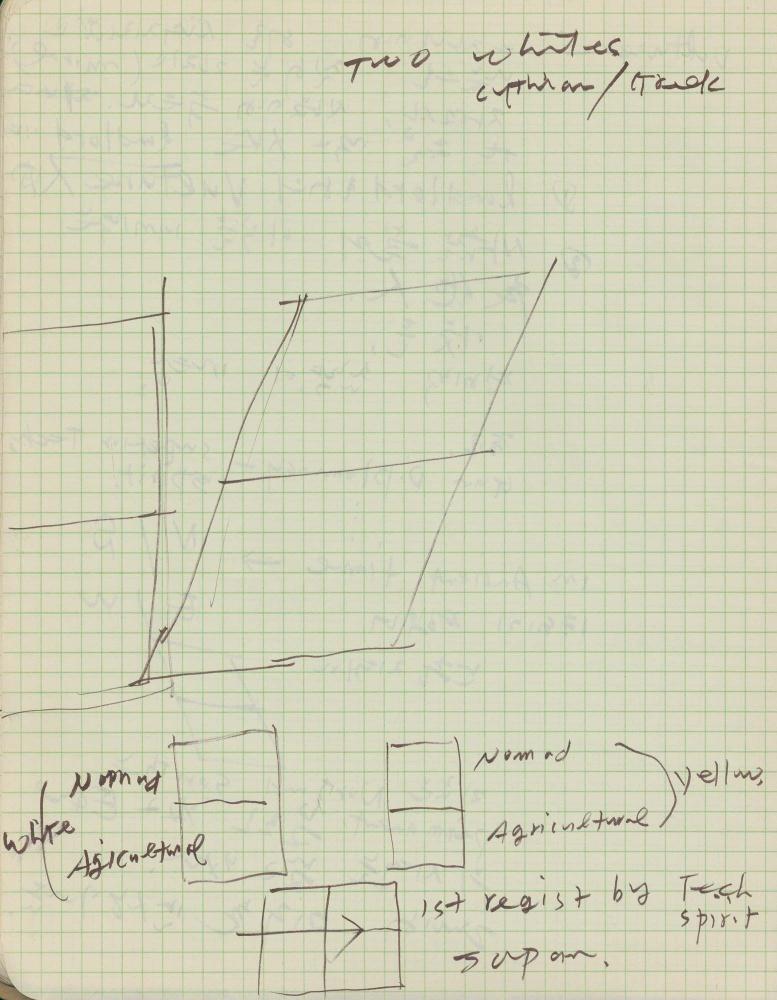 TWO whites
/ track
Nomad
White
Agricultural
Nomad
yellow
Agricultural
1st regist by Tech
spirit